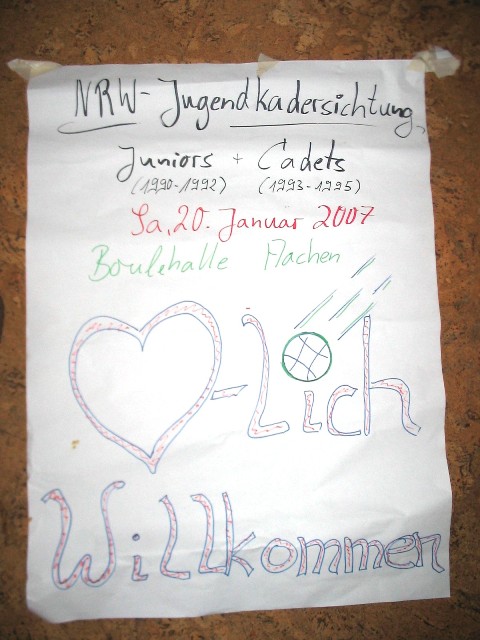 NRW-Jugendkadersichtung
Juniors + Cadets
(1990-1992) (1993-1995)
Sa, 20. Januar 2007
Boulehalle Aachen
-Lich
Willkommen